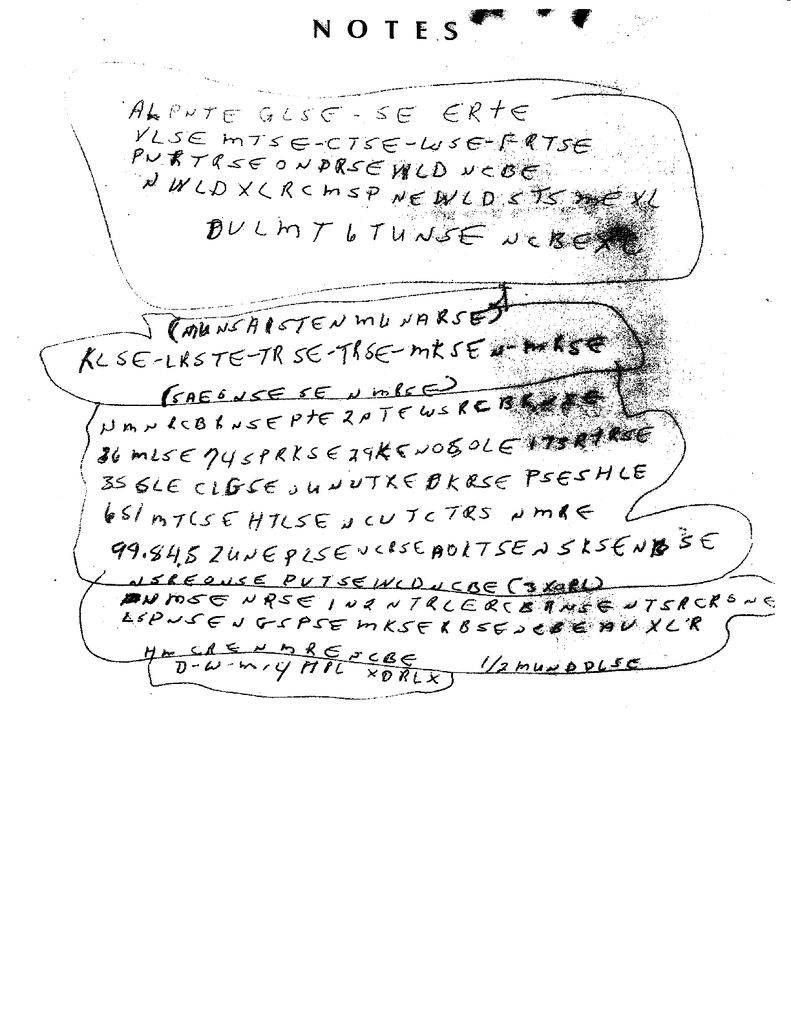 NOTES
ALPNTE GLSE-SE ERTE
VLSE MTSE-CTSE-WSE-FRTSE
PNRTRSEONDRSEWLD NCBE
NWLDXLRCMSP NEWLDSTS ME XL
DULMT6TUNSE NCBEXC
(MUNSAISTENMUNARSE)
KLSE-LRSTE-TRSE-TRSE-MKSEN-MRSE
(SAEGNSESE NMRSE)
NMNRCBRNSEPTE2PTEWSRCBRNSE
36MLSE 74SPRKSE 29KENOSOLE 173RTRSE
35GLE CLGSE OUNUTXE DKRSE PSESHLE
651MTCSE HTLSE NCUTCTRS NMRE
99.84.5 ZUNEPLSENCRSEAOKTSENSKSENBSE
NSREONSE PUTSEWLD NCBE (3XORL)
NMSE NRSE IN2NTRLERCBRNSE NTSRCRSNE
LSPNSENGSPSE MKSERBSENCBEAUXLR
HM CRE NMRE NCBE 1/2MUNDDLSE
D-W-M-4 MPL XDRLX